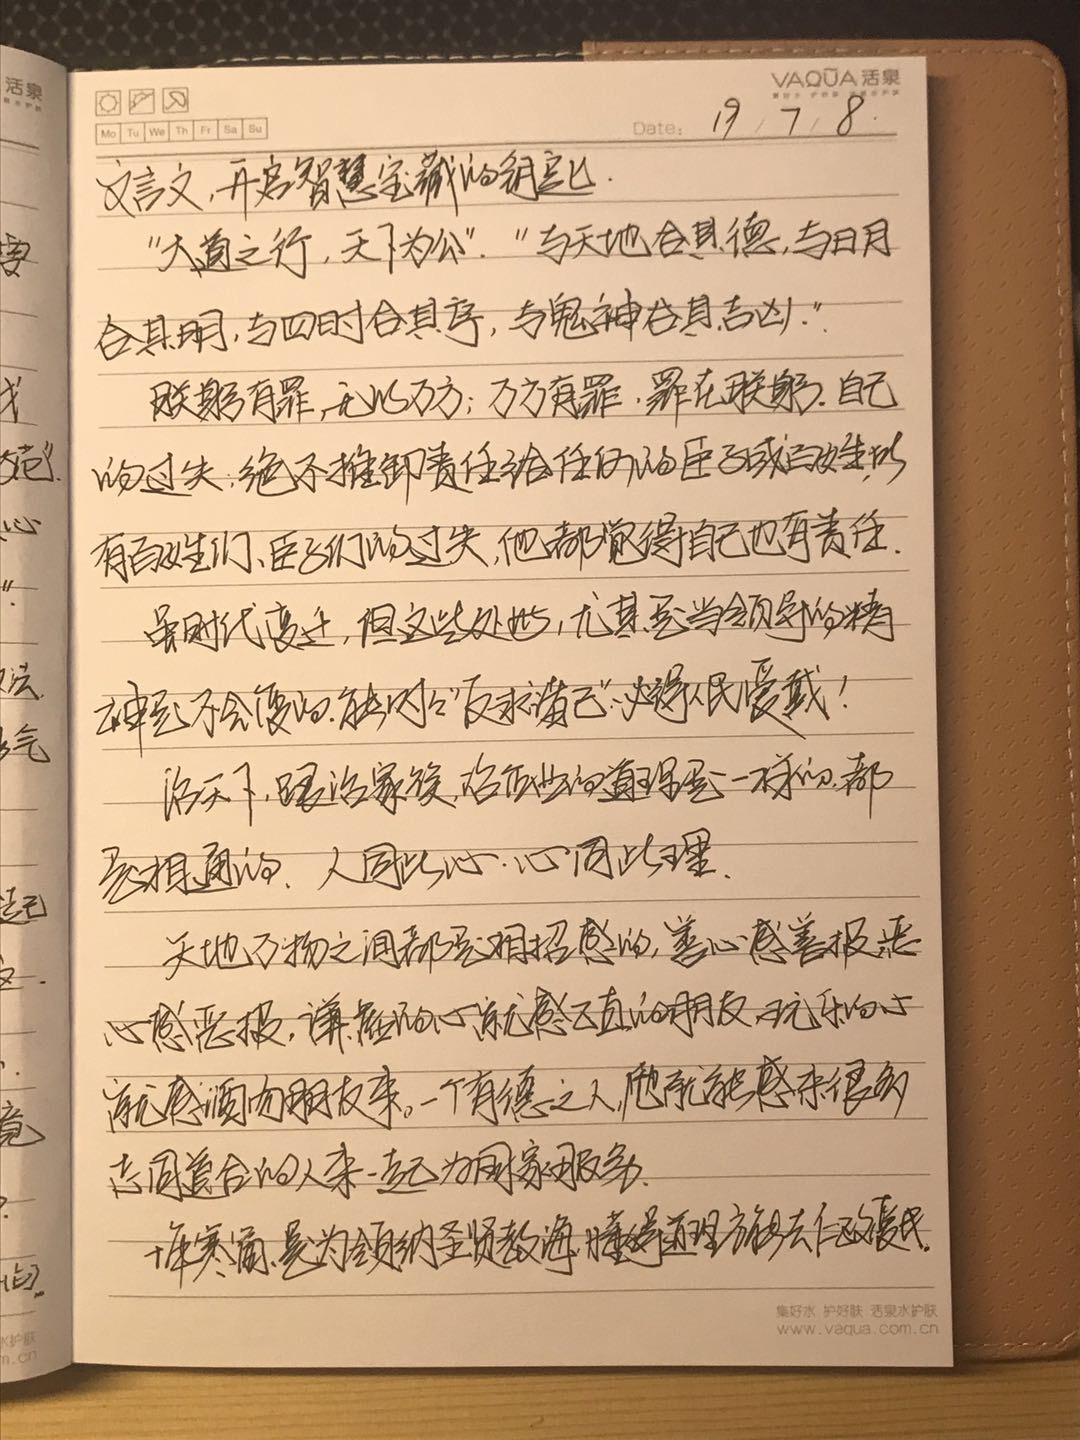 VAQUA 活泉
Mo Tu We Th Fr Sa Su
Date: 19 / 7 / 8.
文言文,开启智慧宝藏的钥匙.
"大道之行,天下为公"."与天地合其德,与日月
合其明,与四时合其序,与鬼神合其吉凶."
朕躬有罪,无以万方;万方有罪,罪在朕躬.自己
的过失,绝不推卸责任给任何的臣子或百姓,所
有百姓们、臣子们的过失,他都觉得自己也有责任.
虽时代变迁,但这些处世,尤其是当领导的精
神是不会变的.能时时"反求诸己",必得人民爱戴!
治天下,跟治家族,治企业的道理是一样的,都
是相通的. 人同此心.心同此理.
天地万物之间都是相招感的,善心感善报,恶
心感恶报,谦虚的心就感正直的朋友,玩乐的心
就感酒肉朋友来。一个有德之人,他就能感来很多
志同道合的人来一起为国家服务.
十年寒窗,是为领纳圣贤教诲,懂得道理方能去仁政爱民.
集好水 护好肤 活泉水护肤
www.vaqua.com.cn
活泉
要
心
法.
气
起己
竟